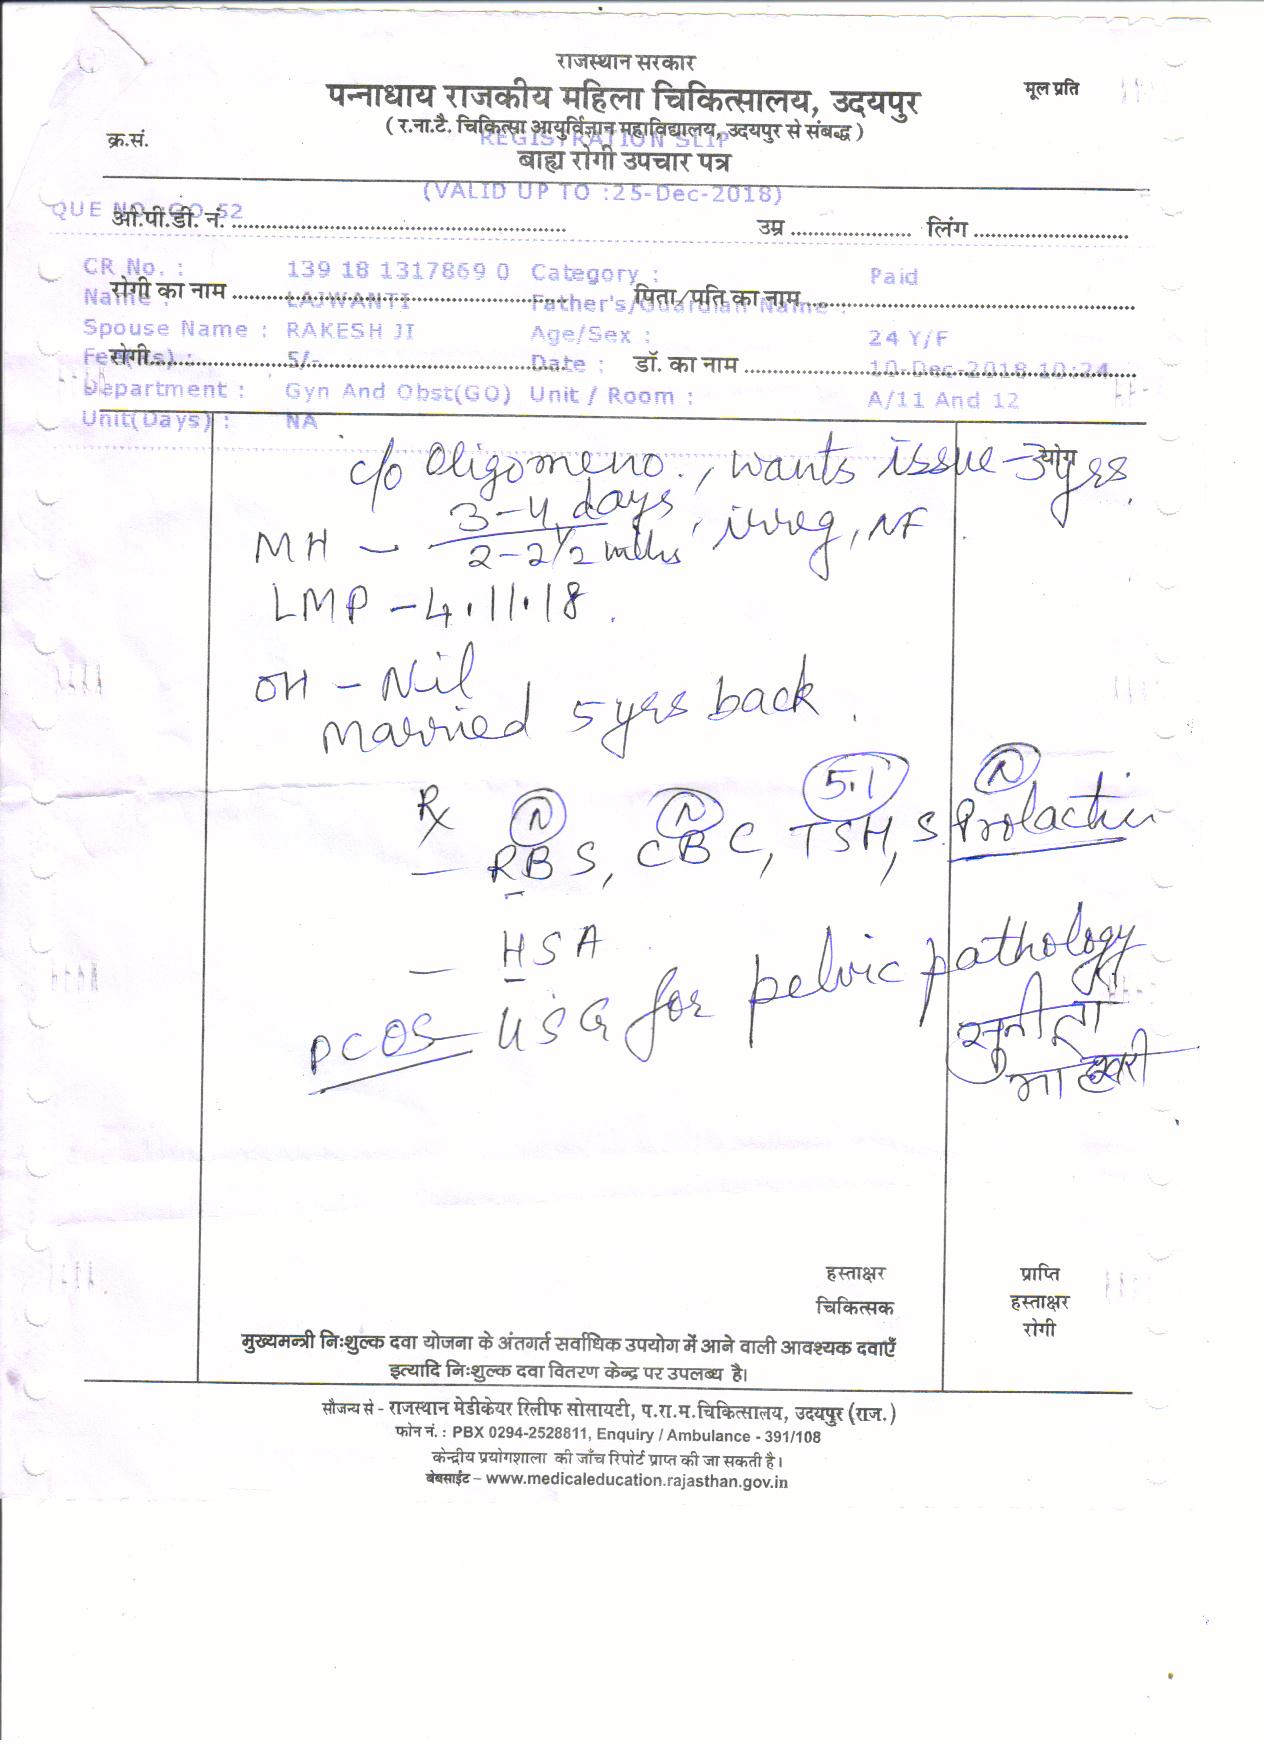 राजस्थान सरकार
पन्नाधाय राजकीय महिला चिकित्सालय, उदयपुर
मूल प्रति
( र.ना.टै. चिकित्सा आयुर्विज्ञान महाविद्यालय, उदयपुर से संबद्ध )
क्र.सं.
REGISTRATION SLIP
बाह्य रोगी उपचार पत्र
(VALID UP TO :25-Dec-2018)
QUE NO. :GO-52
ओ.पी.डी. नं. उम्र लिंग
CR No. : 139 18 1317869 0 Category : Paid
रोगी का नाम पिता/पति का नाम
Name : LAJWANTI Father's/Guardian Name :
Spouse Name : RAKESH JI Age/Sex : 24 Y/F
रोगी डॉ. का नाम
Fee(Rs) : 5/- Date : 10-Dec-2018 10:24
Department : Gyn And Obst(GO) Unit / Room : A/11 And 12
Unit(Days) : NA
c/o Oligomeno., wants issue - 3 yrs.
योग
MH - 3-4 days / 2-2½ mths, irreg, NF
LMP - 4.11.18.
OH - Nil
married 5 yrs back.
Rx N N 5.1 N
- RBS, CBC, TSH, S. Prolactin
- HSA
PCOS - USG for pelvic pathology
सुनीता
माहेश्वरी
हस्ताक्षर
चिकित्सक
प्राप्ति
हस्ताक्षर
रोगी
मुख्यमन्त्री निःशुल्क दवा योजना के अंतगर्त सर्वाधिक उपयोग में आने वाली आवश्यक दवाएँ
इत्यादि निःशुल्क दवा वितरण केन्द्र पर उपलब्ध है।
सौजन्य से - राजस्थान मेडीकेयर रिलीफ सोसायटी, प.रा.म.चिकित्सालय, उदयपुर (राज.)
फोन नं. : PBX 0294-2528811, Enquiry / Ambulance - 391/108
केन्द्रीय प्रयोगशाला की जाँच रिपोर्ट प्राप्त की जा सकती है।
बेबसाईट – www.medicaleducation.rajasthan.gov.in